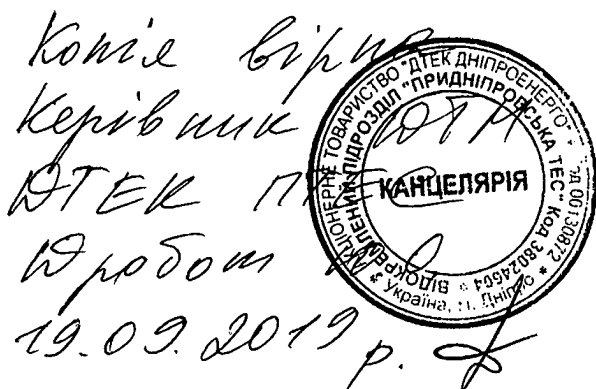 Копія вірна
Керівник
ДТЕК ПТЕС
19.09.2019 р.
АКЦІОНЕРНЕ ТОВАРИСТВО "ДТЕК ДНІПРОЕНЕРГО" * Код 00130872 * Україна, м. Дніпро *
ВІДОКРЕМЛЕНИЙ ПІДРОЗДІЛ "ПРИДНІПРОВСЬКА ТЕС" Код 38024504 *
КАНЦЕЛЯРІЯ